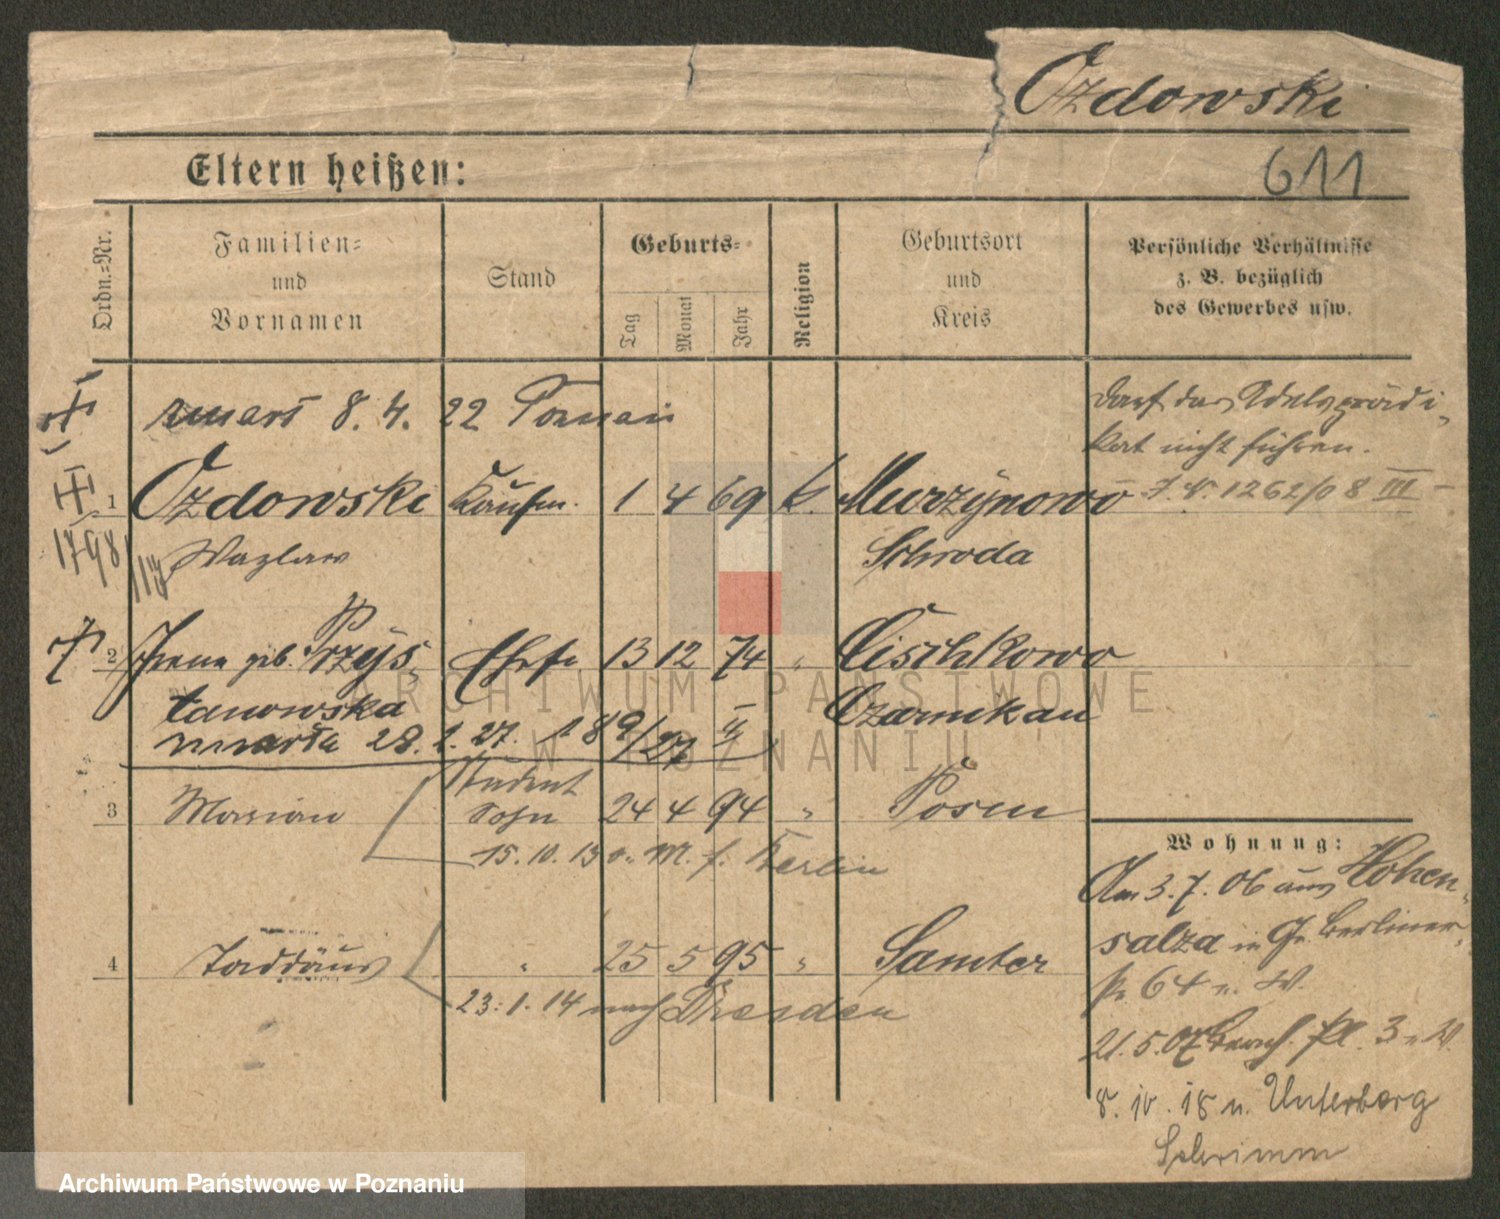 Ozdowski
Eltern heißen:
611
Ordn.-Nr.
Familien-
und
Vornamen
Stand
Geburts-
Tag
Monat
Jahr
Religion
Geburtsort
und
Kreis
Persönliche Verhältnisse
z. B. bezüglich
des Gewerbes usw.
zmarł 8. 4. 22 Poznań
Darf das Adelsprädi-
kat nicht führen.
1 Ozdowski Kaufm. 1 4 69 k. Murzynowo
J. N. 1262/08 III
1798/113 Wazlaw Schroda
2 Irena geb. Przys- Ehefr 13 12 74 " Cischkowo
tanowska Czarnikau
zmarła 28. 1. 27. 189/27 II
Student
3 Marian Sohn 24 4 94 " Posen
15. 10. 13 a. M. f. Berlin
Wohnung:
Am 3. 7. 06 aus Hohen-
salza in Gr. Berliner-
str 64 u. W.
4 Taddäus " 25 5 95 " Samter
23. 1. 14 nach Dresden
21. 5. 07 Pl. 3 u. W.
8. 10. 18 n. Unterberg
Schrimm
ARCHIWUM PAŃSTWOWE
W POZNANIU
Archiwum Państwowe w Poznaniu